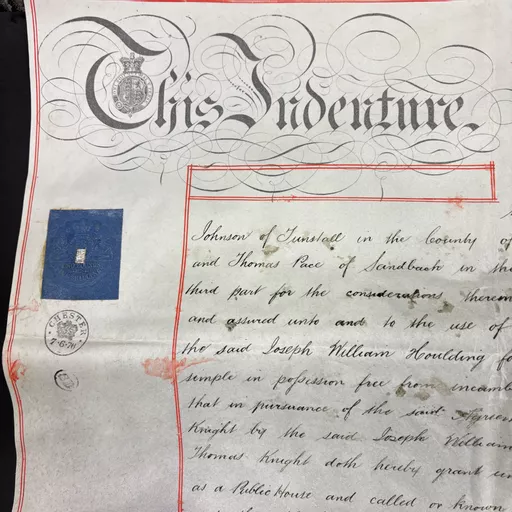 This Indenture.
Johnson of Tunstall in the County of
and Thomas Pace of Sandbach in the
third part for the considerations therein
and assured unto and to the use of
the said Joseph William Houlding
simple in possession free from
that in pursuance of the said
Knight by the said Joseph William
Thomas Knight doth hereby grant
as a Public House and called or known
CHESTER